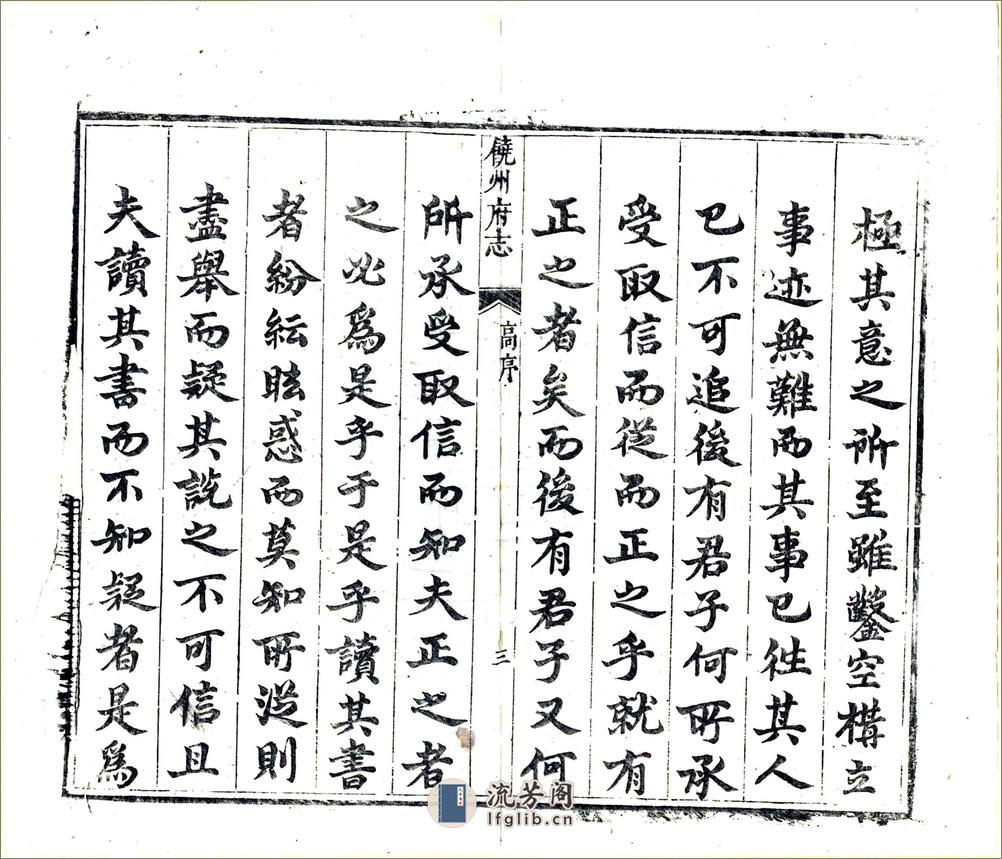 極其意之所至雖鑿空構立
事迹無難而其事已徃其人
已不可追後有君子何所承
受取信而從而正之乎就有
正之者矣而後有君子又何
饒州府志
高序
三
所承受取信而知夫正之者
之必爲是乎于是乎讀其書
者紛紜眩惑而莫知所從則
盡舉而疑其説之不可信且
夫讀其書而不知疑者是爲
流芳阁
lfglib.cn